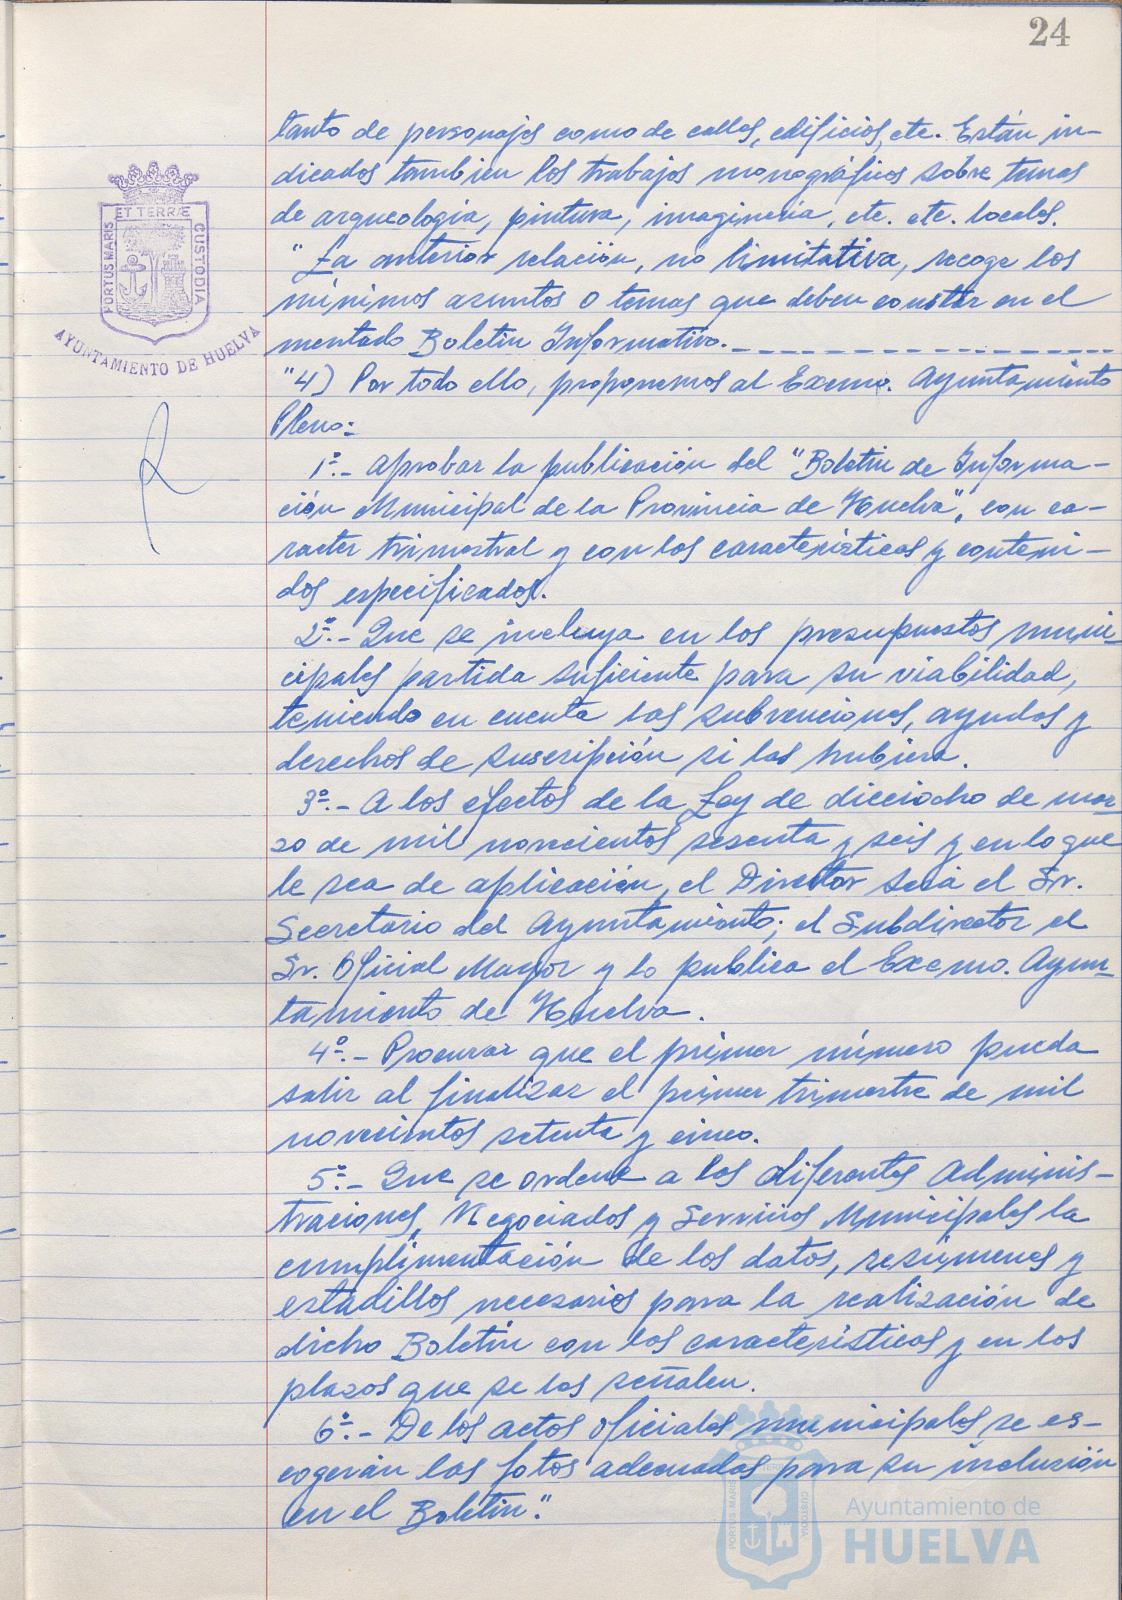 24
tanto de personajes como de calles, edificios, etc. Están in-
dicados tambien los trabajos monográficos sobre temas
de arqueologia, pintura, imagineria, etc. etc. locales.
"La anterior relación, no limitativa, recoge los
mínimos asuntos o temas que deben constar en el
mentado Boletin Informativo.
"4) Por todo ello, proponemos al Excmo. Ayuntamiento
Pleno:
1º.- Aprobar la publicación del "Boletin de Informa-
ción Municipal de la Provincia de Huelva", con ca-
racter trimestral y con las caracteristicas y conteni-
dos especificados.
2º.- Que se incluya en los presupuestos muni-
cipales partida suficiente para su viabilidad,
teniendo en cuenta las subvenciones, ayudas y
derechos de suscripción si los hubiera.
3º.- A los efectos de la Ley de dieciocho de mar-
zo de mil novecientos sesenta y seis y en lo que
le sea de aplicación, el Director será el Sr.
Secretario del Ayuntamiento; el Subdirector el
Sr. Oficial Mayor y lo publica el Excmo. Ayun-
tamiento de Huelva.
4º.- Procurar que el primer número pueda
salir al finalizar el primer trimestre de mil
novecientos setenta y cinco.
5º.- Que se ordene a las diferentes Adminis-
traciones, Negociados y Servicios Municipales la
cumplimentación de los datos, resúmenes y
estadillos necesarios para la realización de
dicho Boletín con las características y en los
plazos que se les señalen.
6º.- De los actos oficiales municipales se es-
cogerán las fotos adecuadas para su inclusión
en el Boletin".
ET TERRÆ
PORTUS MARIS
CUSTODIA
AYUNTAMIENTO DE HUELVA
PORTUS MARIS
CUSTODIA
Ayuntamiento de
HUELVA